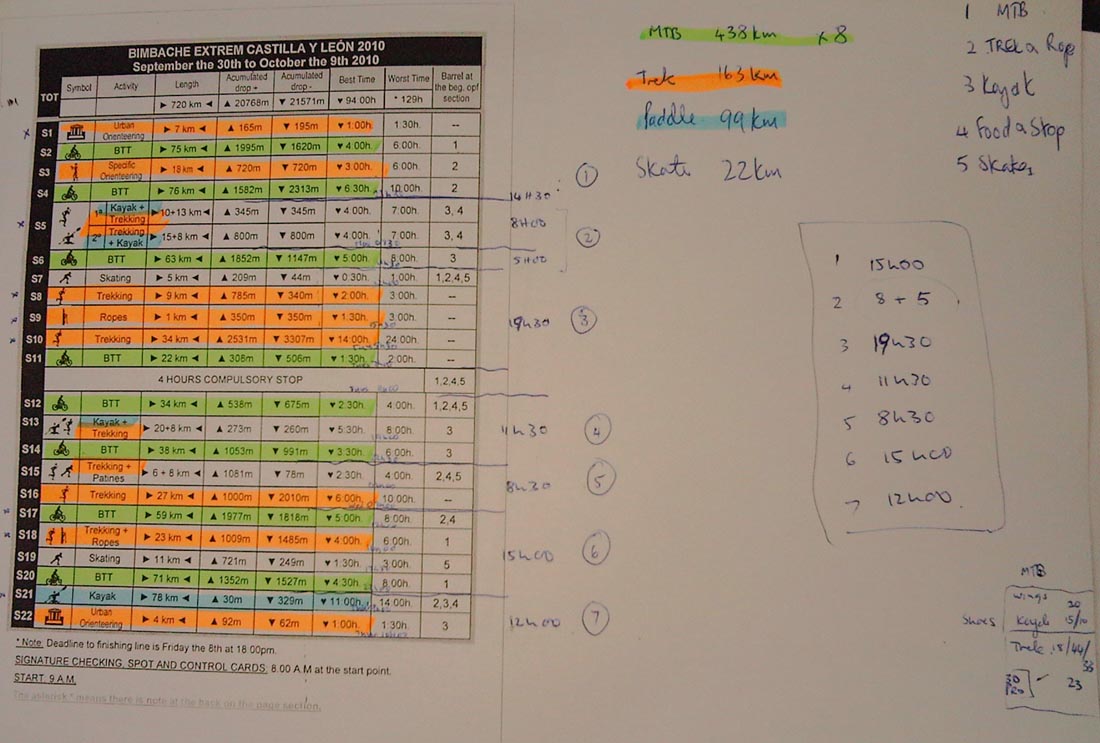 BIMBACHE EXTREM CASTILLA Y LEÓN 2010
September the 30th to October the 9th 2010
TOT Symbol Activity Length Acumulated drop + Acumulated drop - Best Time Worst Time Barrel at the beg. opf section
► 720 km ◄ ▲ 20768m ▼ 21571m ♥ 94:00h. * 129h
S1 Urban Orienteering ► 7 km ◄ ▲ 165m ▼ 195m ♥ 1:00h. 1:30h. --
S2 BTT ► 75 km ◄ ▲ 1995m ▼ 1620m ♥ 4:00h. 6:00h. 1
S3 Specific Orienteering ► 18 km ◄ ▲ 720m ▼ 720m ♥ 3:00h. 6:00h. 2
S4 BTT ► 76 km ◄ ▲ 1582m ▼ 2313m ♥ 6:30h. 10:00h. 2
S5 1º Kayak + Trekking ► 10+13 km ◄ ▲ 345m ▼ 345m ♥ 4:00h. 7:00h. 3, 4
2º Trekking + Kayak ► 15+8 km ◄ ▲ 800m ▼ 800m ♥ 4:00h. 7:00h. 3, 4
S6 BTT ► 63 km ◄ ▲ 1852m ▼ 1147m ♥ 5:00h. 8:00h. 3
S7 Skating ► 5 km ◄ ▲ 209m ▼ 44m ♥ 0:30h. 1:00h. 1,2,4,5
S8 Trekking ► 9 km ◄ ▲ 785m ▼ 340m ♥ 2:00h. 3:00h. --
S9 Ropes ► 1 km ◄ ▲ 350m ▼ 350m ♥ 1:30h. 3:00h. --
S10 Trekking ► 34 km ◄ ▲ 2531m ▼ 3307m ♥ 14:00h. 24:00h. --
S11 BTT ► 22 km ◄ ▲ 308m ▼ 506m ♥ 1:30h. 2:00h. --
4 HOURS COMPULSORY STOP 1,2,4,5
S12 BTT ► 34 km ◄ ▲ 538m ▼ 675m ♥ 2:30h. 4:00h. 1,2,4,5
S13 Kayak + Trekking ► 20+8 km ◄ ▲ 273m ▼ 260m ♥ 5:30h. 8:00h. 3
S14 BTT ► 38 km ◄ ▲ 1053m ▼ 991m ♥ 3:30h. 6:00h. 3
S15 Trekking + Patines ► 6 + 8 km ◄ ▲ 1081m ▼ 78m ♥ 2:30h. 4:00h. 2,4,5
S16 Trekking ► 27 km ◄ ▲ 1000m ▼ 2010m ♥ 6:00h. 10:00h. --
S17 BTT ► 59 km ◄ ▲ 1977m ▼ 1818m ♥ 5:00h. 8:00h. 2,4
S18 Trekking + Ropes ► 23 km ◄ ▲ 1009m ▼ 1485m ♥ 4:00h. 6:00h. 1
S19 Skating ► 11 km ◄ ▲ 721m ▼ 249m ♥ 1:30h. 3:00h. 5
S20 BTT ► 71 km ◄ ▲ 1352m ▼ 1527m ♥ 4:30h. 8:00h. 1
S21 Kayak ► 78 km ◄ ▲ 30m ▼ 329m ♥ 11:00h. 14:00h. 2,3,4
S22 Urban Orienteering ► 4 km ◄ ▲ 92m ▼ 62m ♥ 1:00h. 1:30h. 3
* Note: Deadline to finishing line is Friday the 8th at 18:00pm.
SIGNATURE CHECKING, SPOT AND CONTROL CARDS: 8.00 A.M at the start point.
START: 9 A.M.
The asterisk * means there is note at the back on the page section.
14H30 1
8H00 2
5H00
19H30 3
11H30 4
8H30 5
15H00 6
12H00 7
MTB 438km x8
Trek 163km
Paddle 99km
Skate 22km
1 MTB
2 TREK a Rope
3 Kayak
4 Food a Stop
5 Skates
1 15h00
2 8 + 5
3 19h30
4 11h30
5 8h30
6 15h00
7 12h00
MTB
wings 20
Shoes Kayak 15/10
Trek 18/44/
33
3D PRO 23